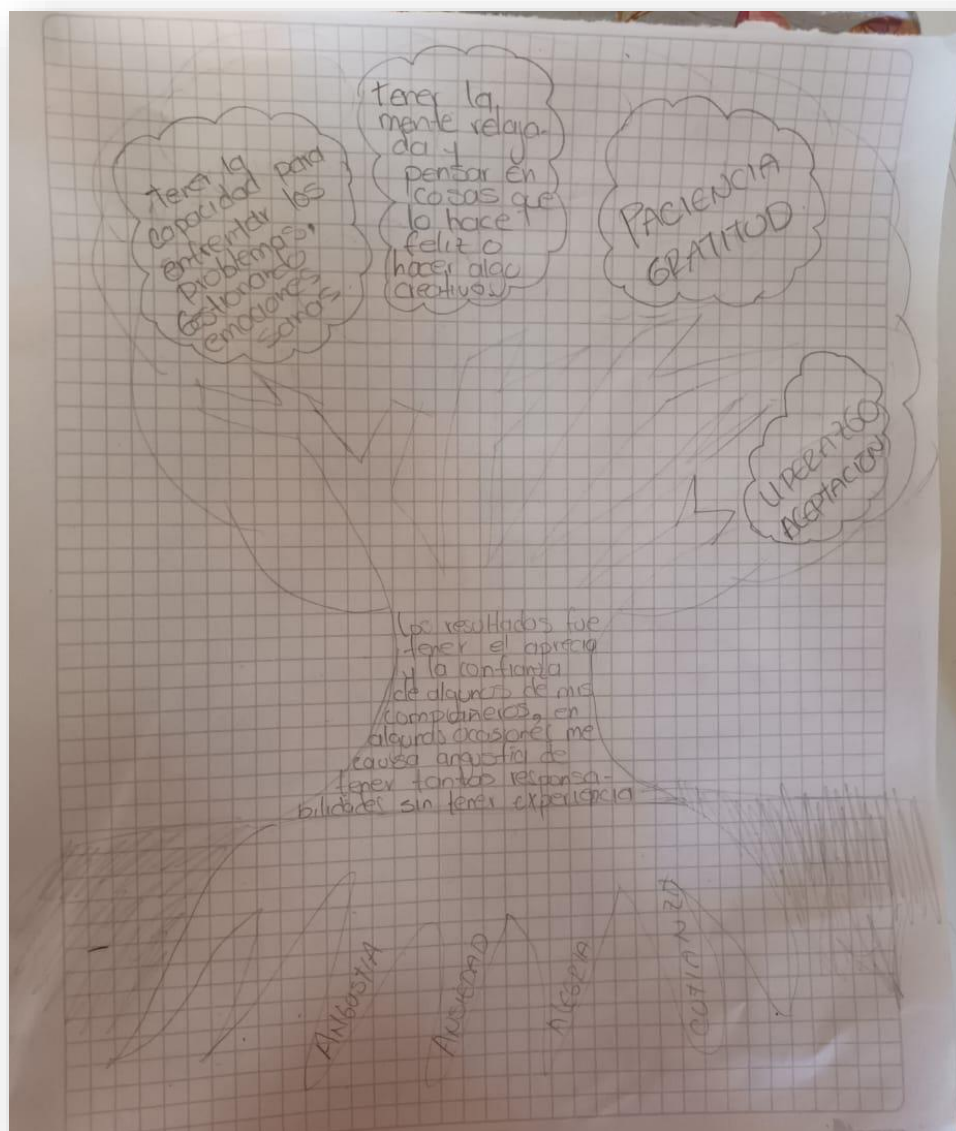 tener la
capacidad para
enfrentar los
problemas,
Gestionando
emociones
sanas
tener la
mente relaja-
da y
pensar en
cosas que
lo hace
feliz o
hacer algo
creativos
PACIENCIA
GRATITUD
LIDERAZGO
ACEPTACION
Los resultados fue
tener el aprecio
y la confianza
de algunos de mis
compañeros, en
algunas ocasiones me
causa angustia de
tener tantas responsa-
bilidades sin tener experiencia
ANGUSTIA
ANSIEDAD
ALEGRIA